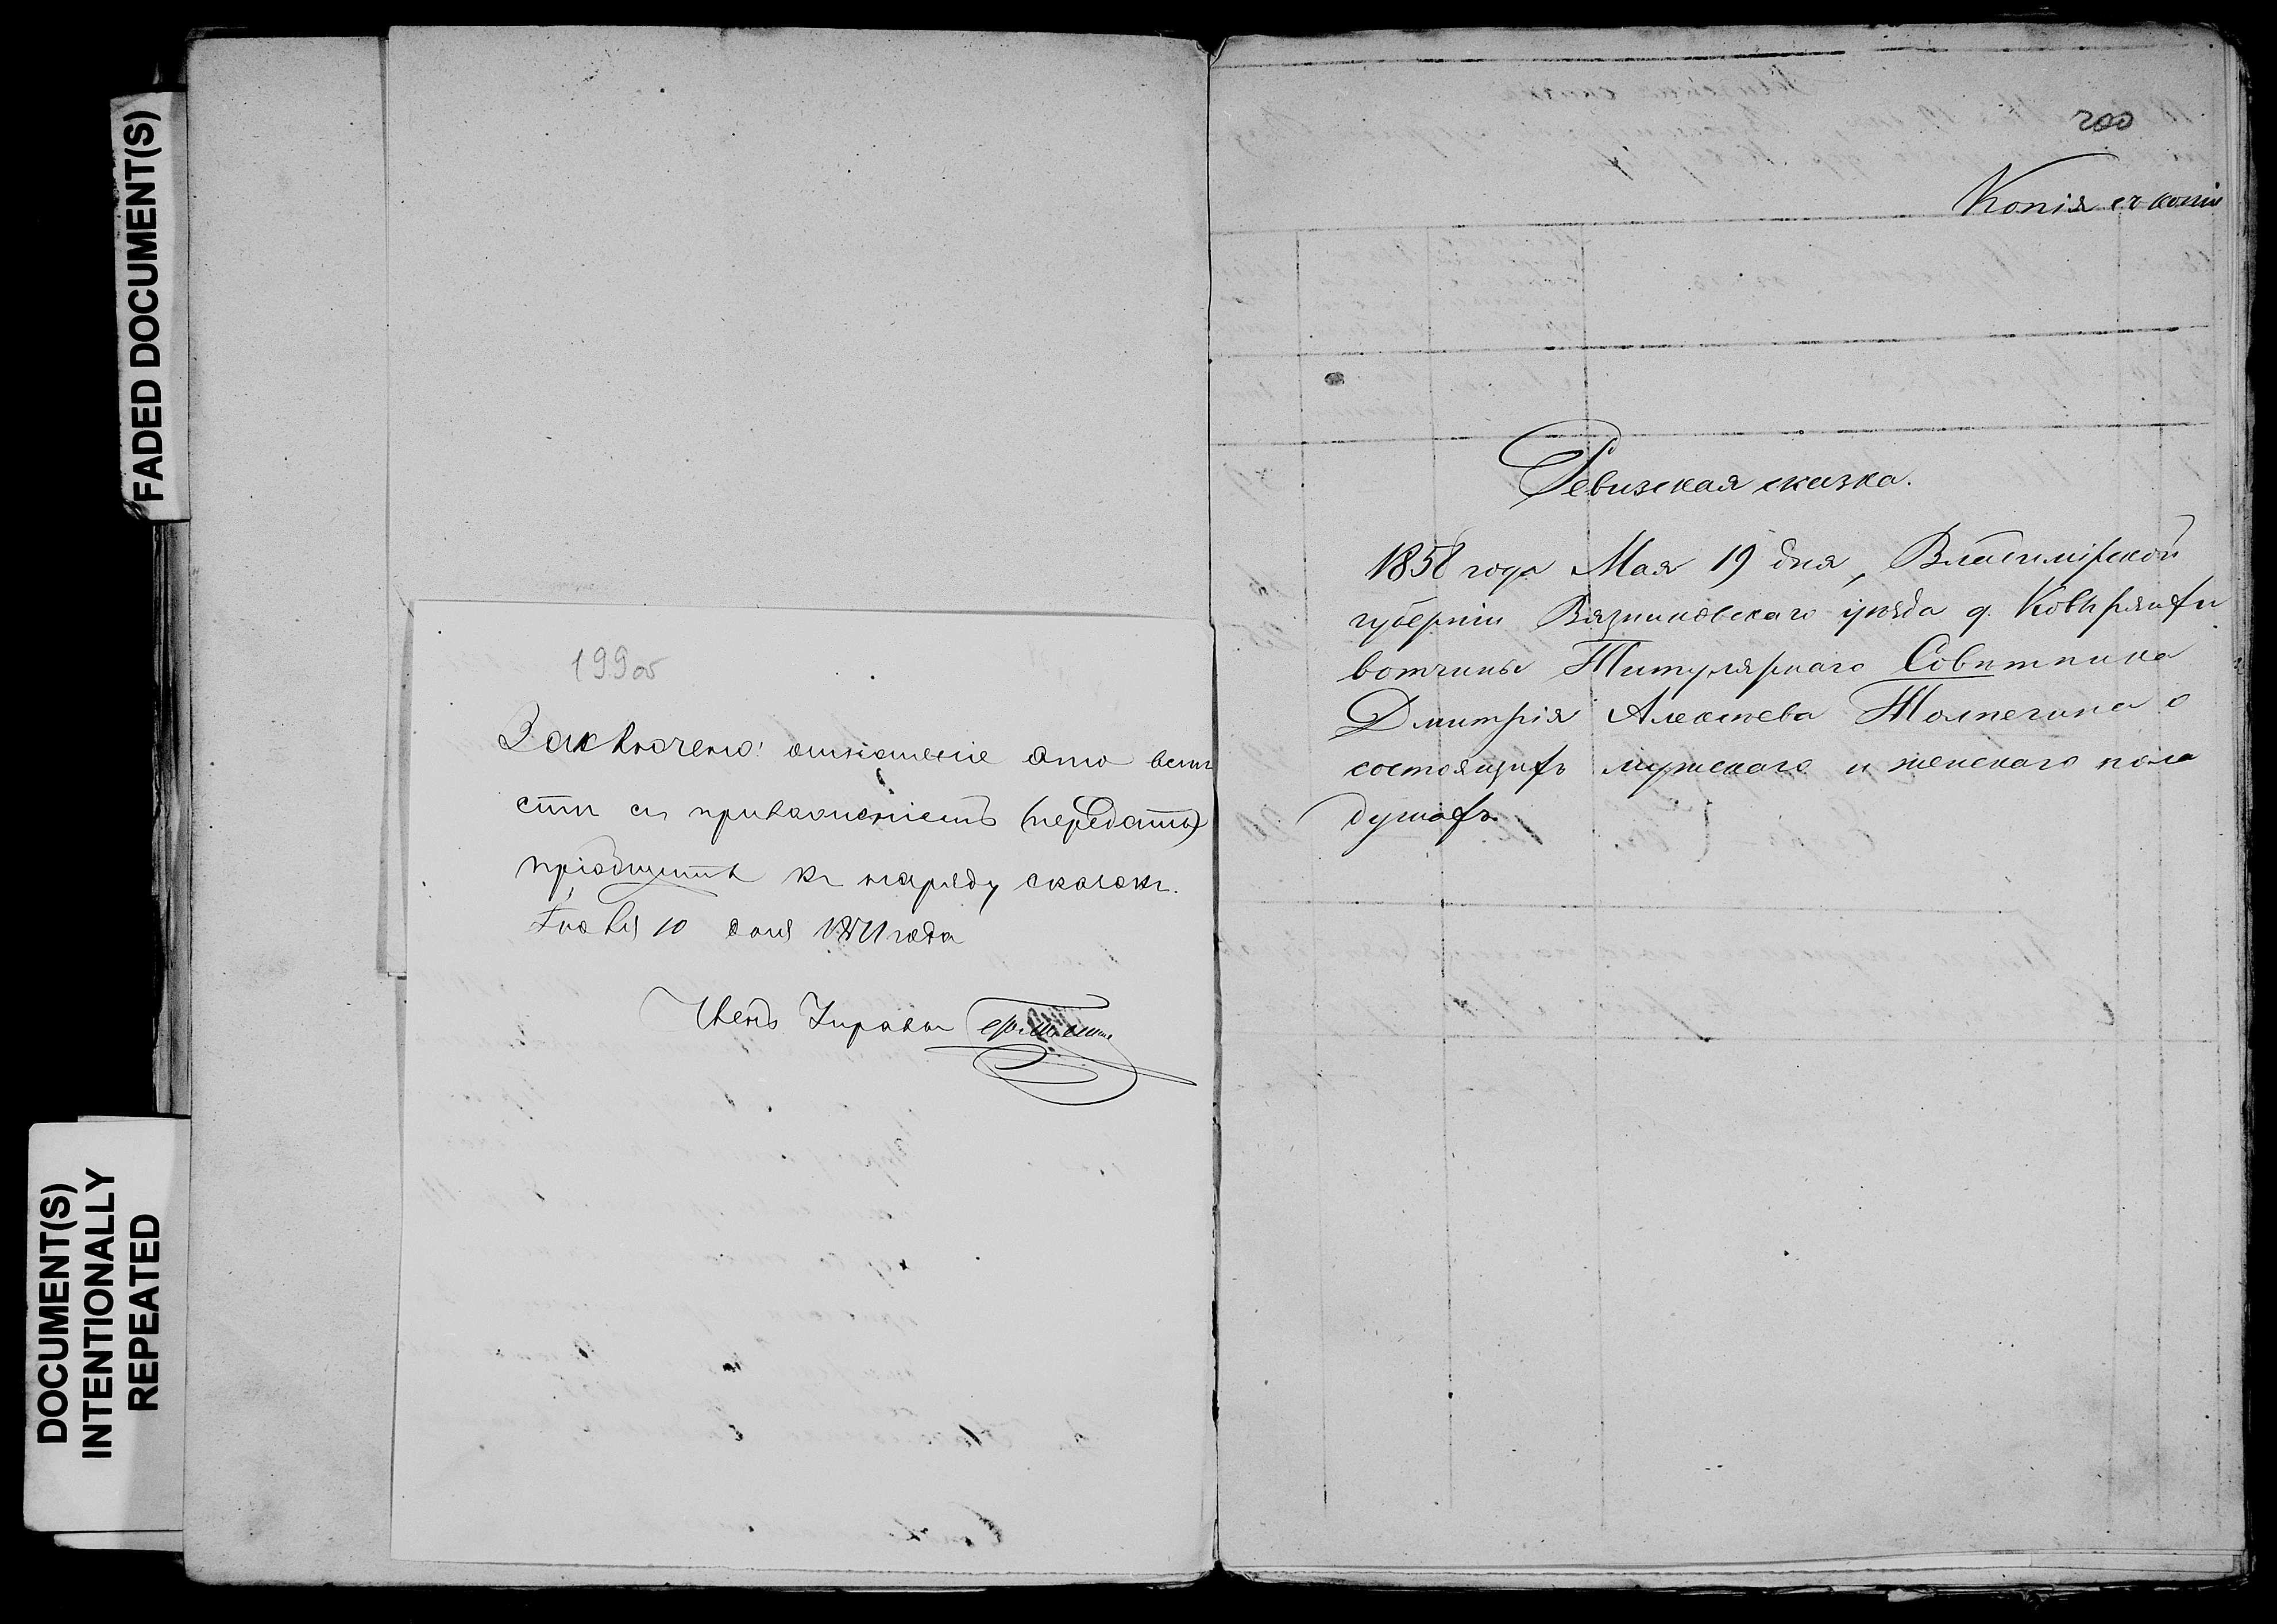 FADED DOCUMENT(S)
DOCUMENT(S)
INTENTIONALLY
REPEATED
199об
Заключено: отношеніе это вмѣ
стѣ съ приложеніемъ (передать)
пріобщить къ наряду сказокъ.
Іюля 10 дня 1871 года
Членъ Управы
200
Копія съ копіи
Ревизская сказка.
1858 года Мая 19 дня, Владимірской
губерніи Вязниковскаго уѣзда д.
вотчины Титулярнаго Совѣтника
Дмитрія Алексѣева о
состоящихъ мужскаго и женскаго пола
душахъ.